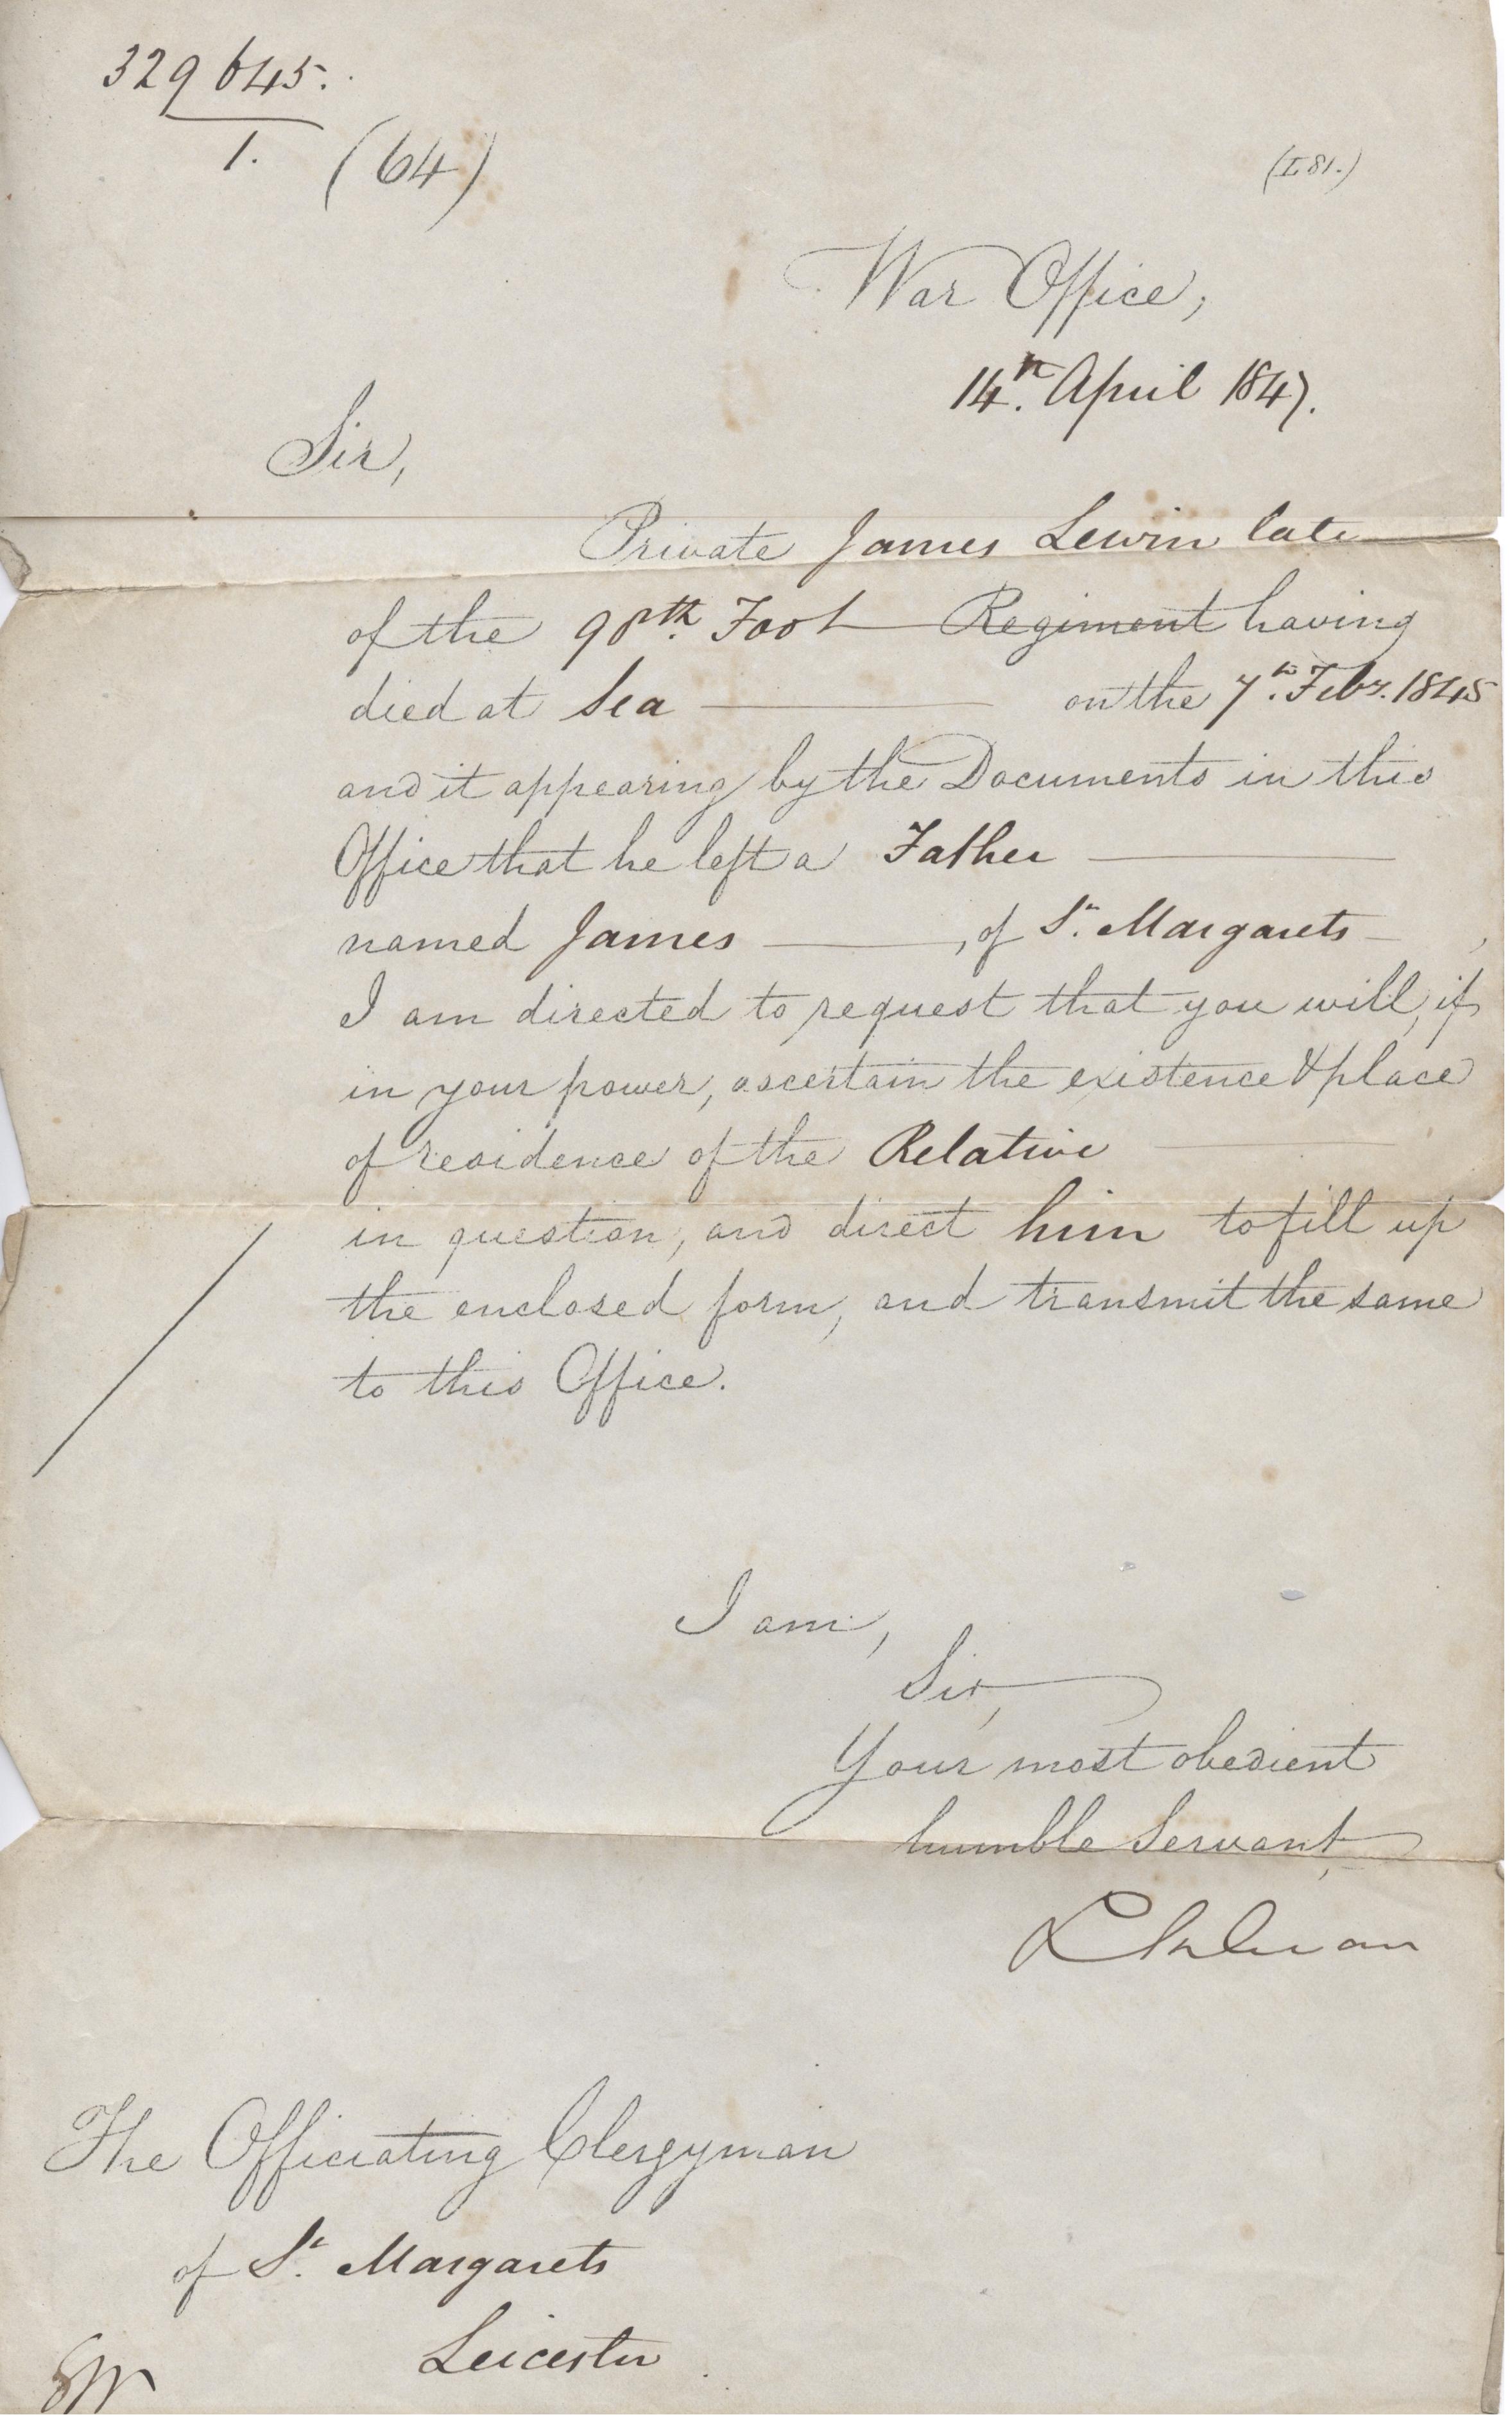 329645.
1. (64)
(I 81.)
War Office,
14th. April 1847.
Sir,
Private James Lewin late
of the 90th. Foot Regiment having
died at Sea on the 7th. Feby. 1845
and it appearing by the Documents in this
Office that he left a Father
named James, of St. Margarets,
I am directed to request that you will, if
in your power, ascertain the existence & place
of residence of the Relative
in question, and direct him to fill up
the enclosed form, and transmit the same
to this Office.
I am,
Sir,
Your most obedient
humble Servant,
The Officiating Clergyman
of St. Margarets
Leicester